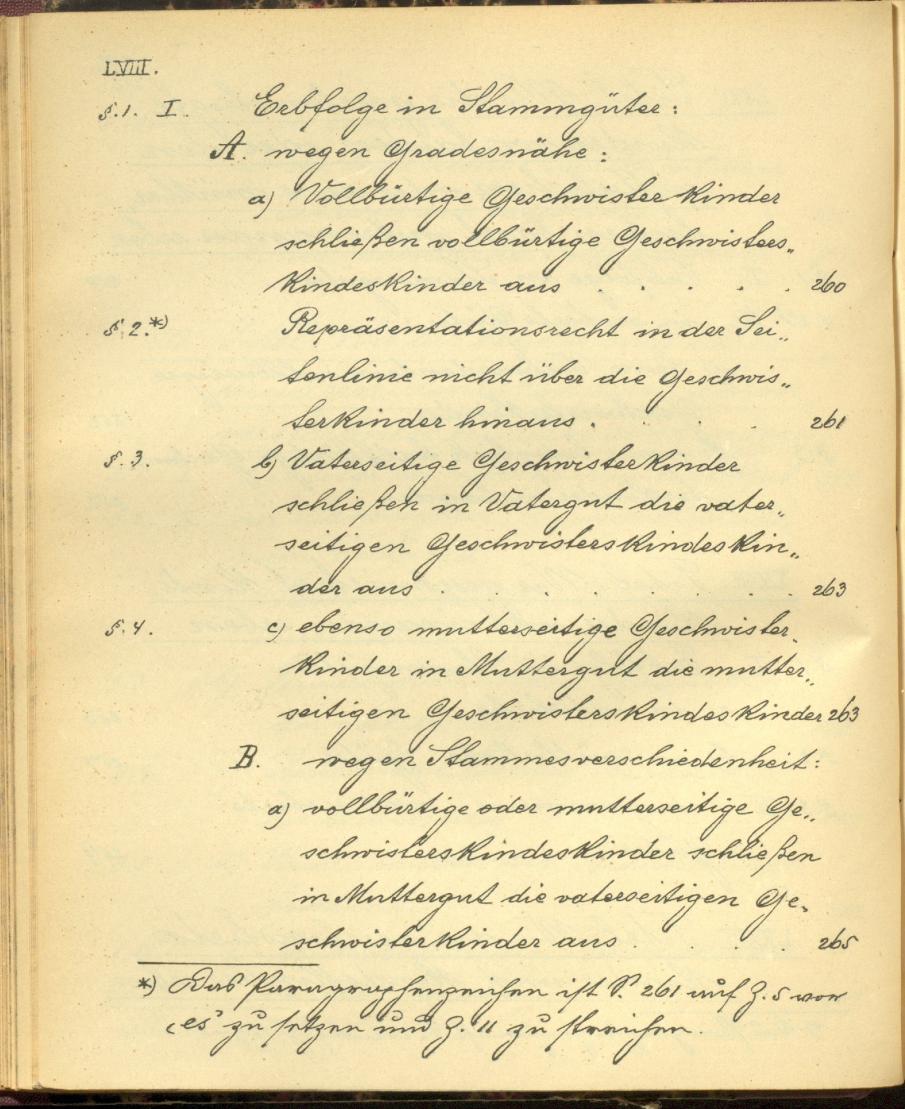 LVIII.
§.1. I. Erbfolge in Stammgüter:
A. wegen Gradesnähe:
a) Vollbürtige Geschwisterkinder
schließen vollbürtige Geschwisters„
kindeskinder aus . . . . . 260
§.2.*) Repräsentationsrecht in der Sei„
tenlinie nicht über die Geschwis„
terkinder hinaus . . . 261
§.3. b) Vaterseitige Geschwisterkinder
schließen in Vatergut die vater„
seitigen Geschwisterskindeskin„
der aus . . . . . . . . 263
§.4. c) ebenso mutterseitige Geschwister„
kinder in Muttergut die mutter„
seitigen Geschwisterskindeskinder 263
B. wegen Stammesverschiedenheit:
a) vollbürtige oder mutterseitige Ge„
schwisterskindeskinder schließen
in Muttergut die vaterseitigen Ge„
schwisterkinder aus . . . . 265
*) Das Paragraphenzeichen ist S. 261 auf Z. 5 vor
„es” zu setzen und Z. 11 zu streichen.